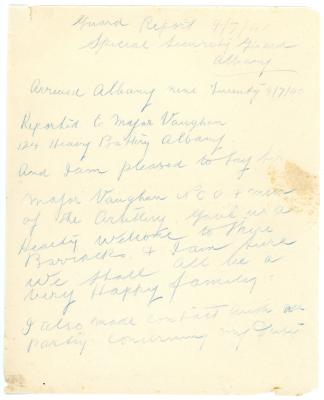 Guard Report 4/7/40
Special Security Guard
Albany
Arrived Albany nine Twenty 4/7/40
Reported to Major Vaughan
Heavy Battery Albany.
And I am pleased to Say Sir
Major Vaughan N C O & men
of the Artillery gave us a
Hearty Welcome to The
Barracks. & I am Sure
We Shall all be a
Very Happy family.
I also made contact with
party concerning my